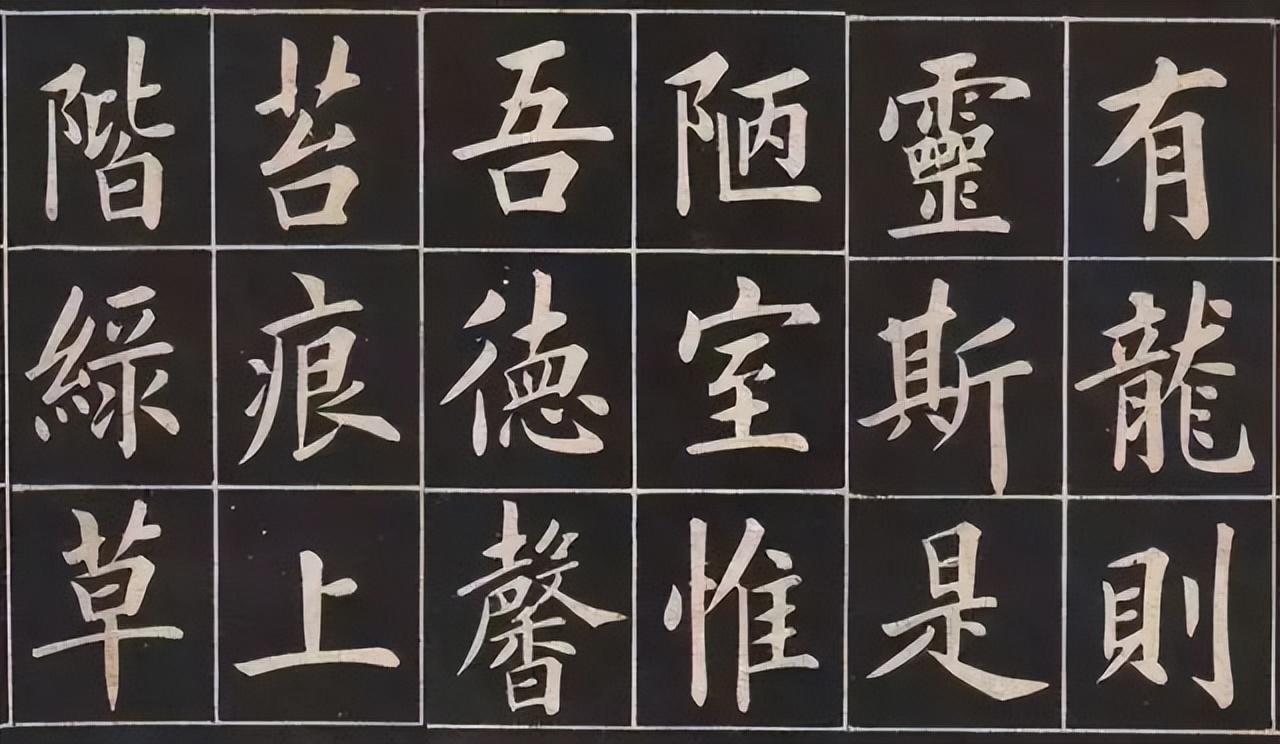 有龍則
靈斯是
陋室惟
吾德馨
苔痕上
階緑草